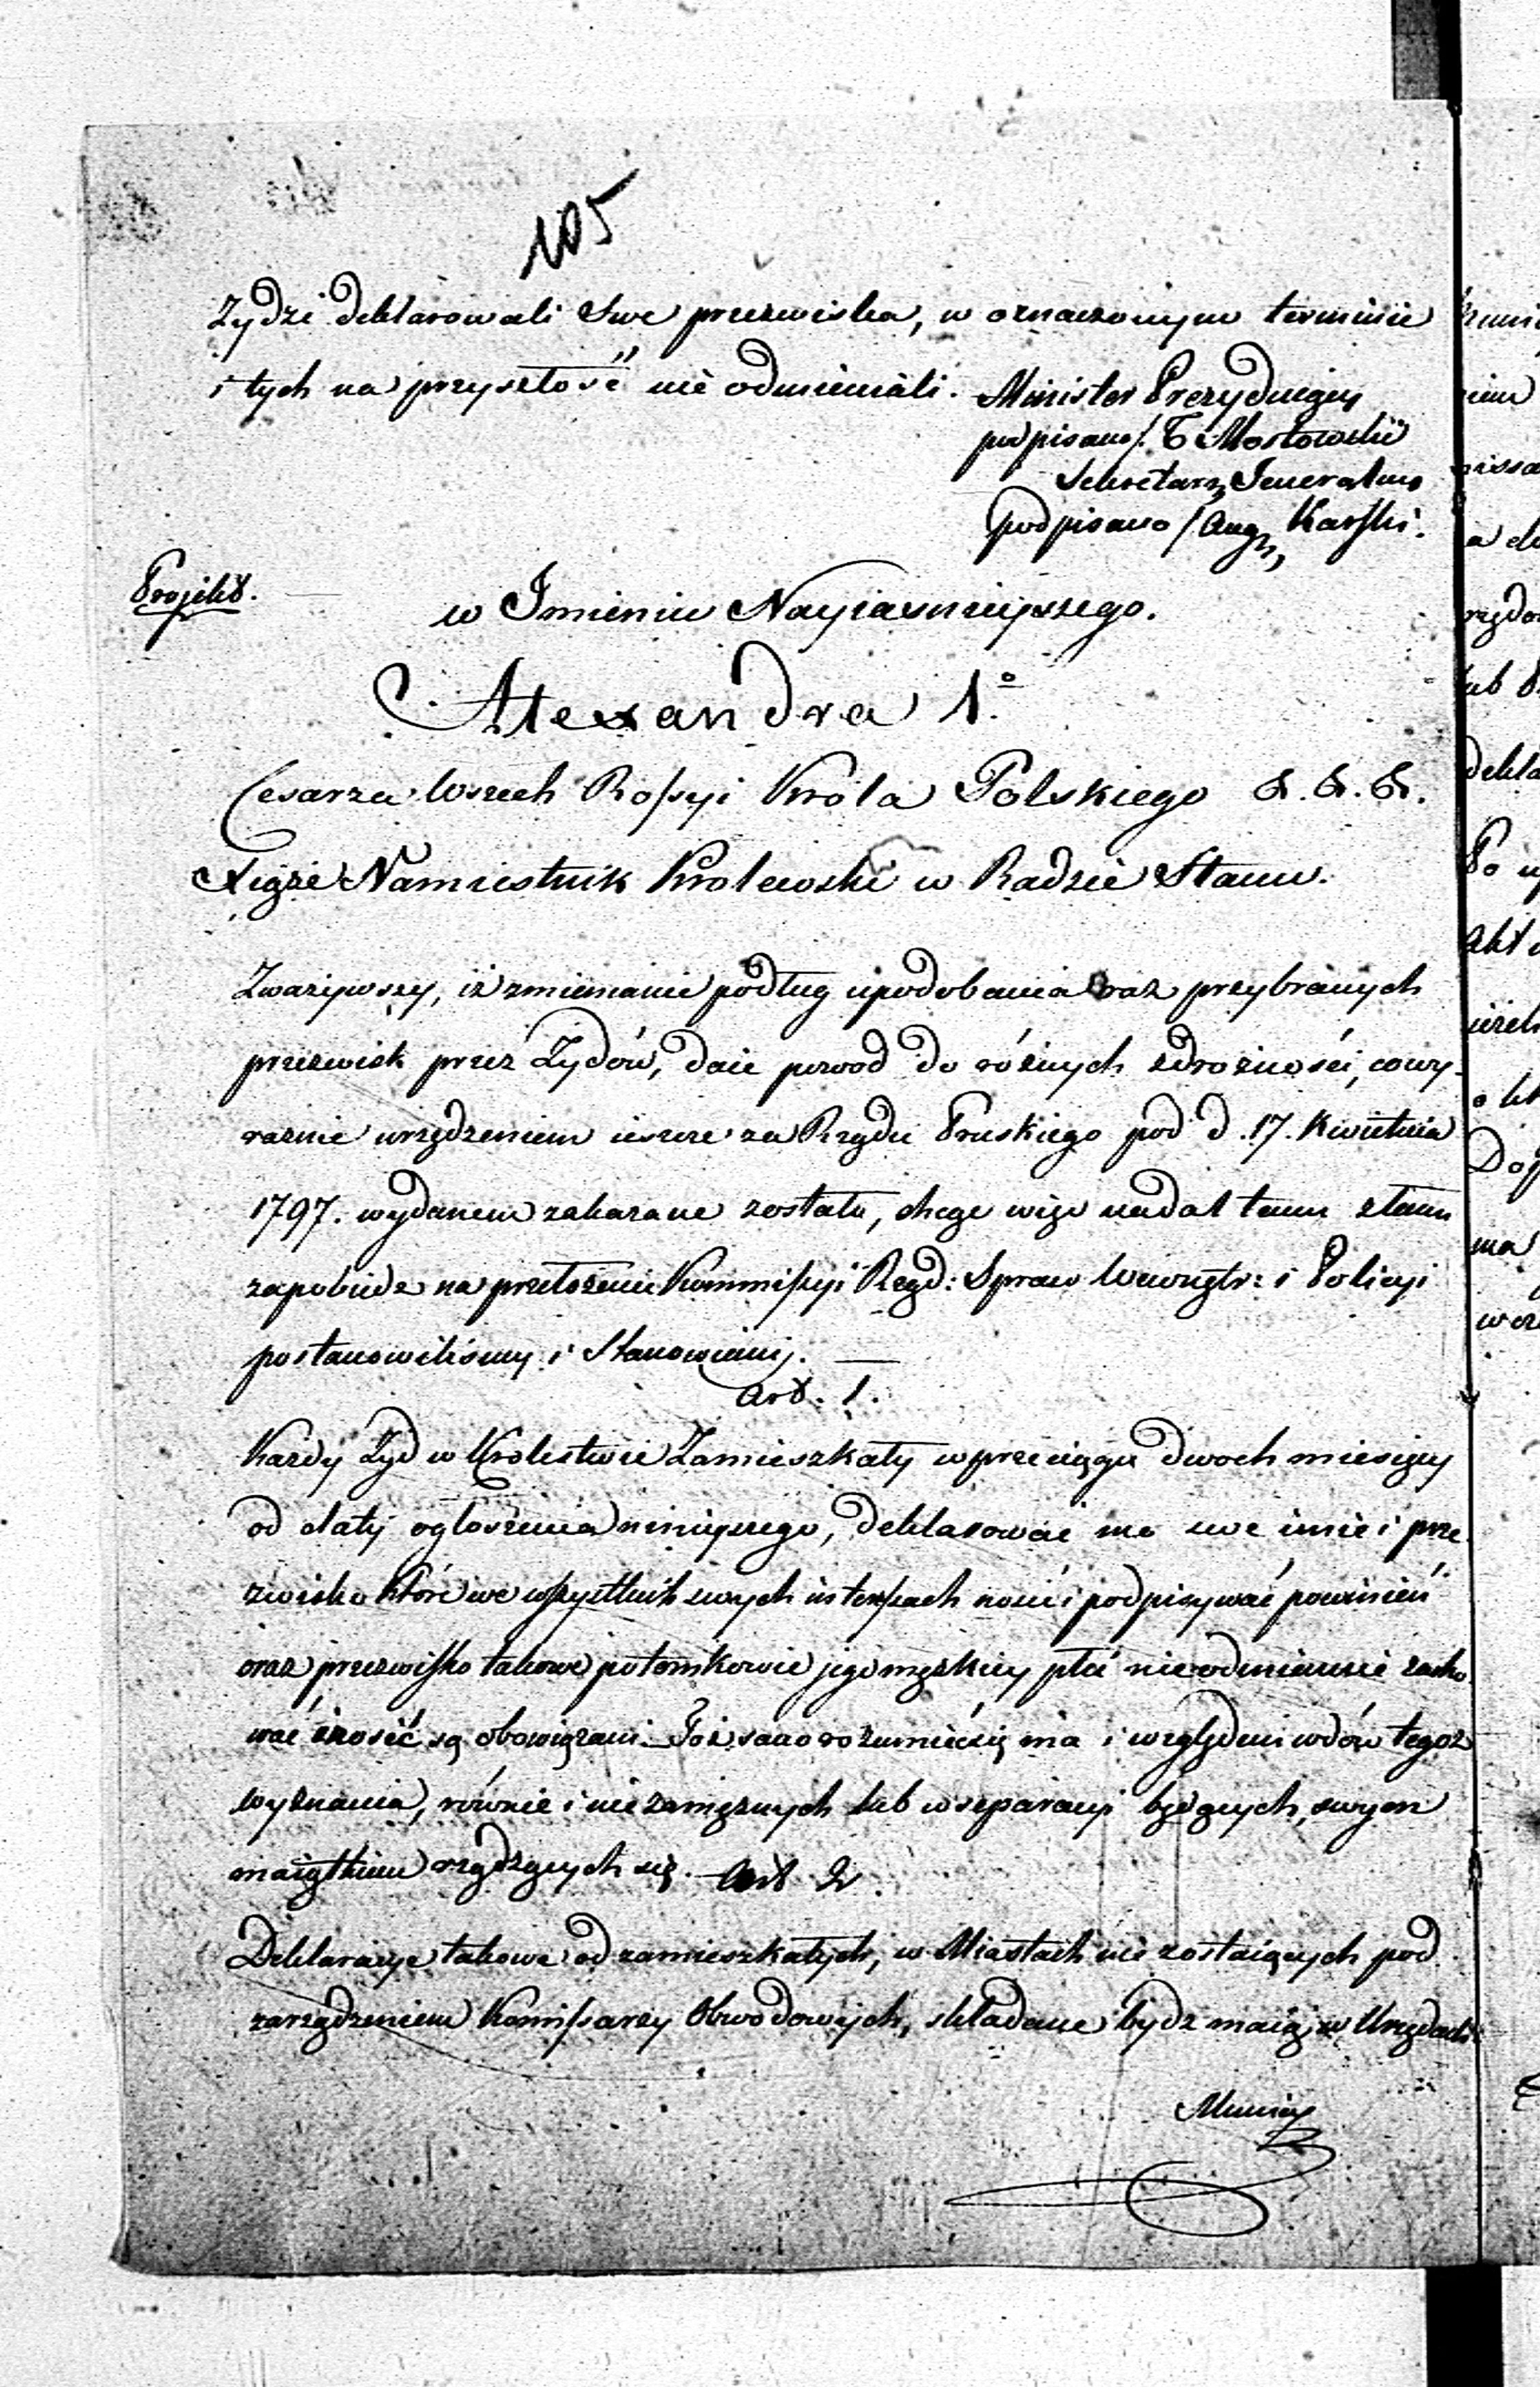 105
Żydzi deklarowali swe przezwiska, w oznaczonym terminie
i tych na przyszłość nie odmieniali.
Minister Prezyduiący
podpisano/. T Mostowski
Sekretarz Jeneralny
podpisano / Aug. Karski.
Projekt.
w Imieniu Nayiasnieyszego.
Alexandra 1º.
Cesarza Wszech Rossyi Króla Polskiego &. &. &.
Xiąże Namiestnik Krolewski w Radzie Stanu.
Zważywszy, iż zmienianie podług upodobania raz przybranych
przezwisk przez Żydów, daie powod do różnych zdrożności, co wy-
raznie urządzeniem ieszcze za Rządu Pruskiego pod d. 17. Kwietnia
1797. wydanem zakazane zostało, chcąc więc nadal temu złemu
zapobiedz na przełożenie Kommissyi Rząd: Spraw Wewnętr: i Policyi
postanowiliśmy i Stanowiemy. —
Art. 1.
Każdy Żyd w Krolestwie Zamieszkały w przeciągu dwoch miesięcy
od daty ogłoszenia ninieyszego, deklarować ma swe imie i prze-
zwisko które we wszystkich swych interssach nosić i podpisywać powinień
oraz przezwisko takowe potomkowie jego męzkiey płci nieodmiennie zacho-
wać i nosić są obowiązani. Toż samo rozumieć się ma i względem wdów tegoż
wyznania, równie i niezamężnych lub w separacyi będących, swym
maiątkiem rządzących się. — Art 2.
Deklaracye takowe od zamieszkałych, w Miastach nie zostaiących pod
zarządzeniem Komissarzy Obwodowych, składane bydz maią w Urzędach